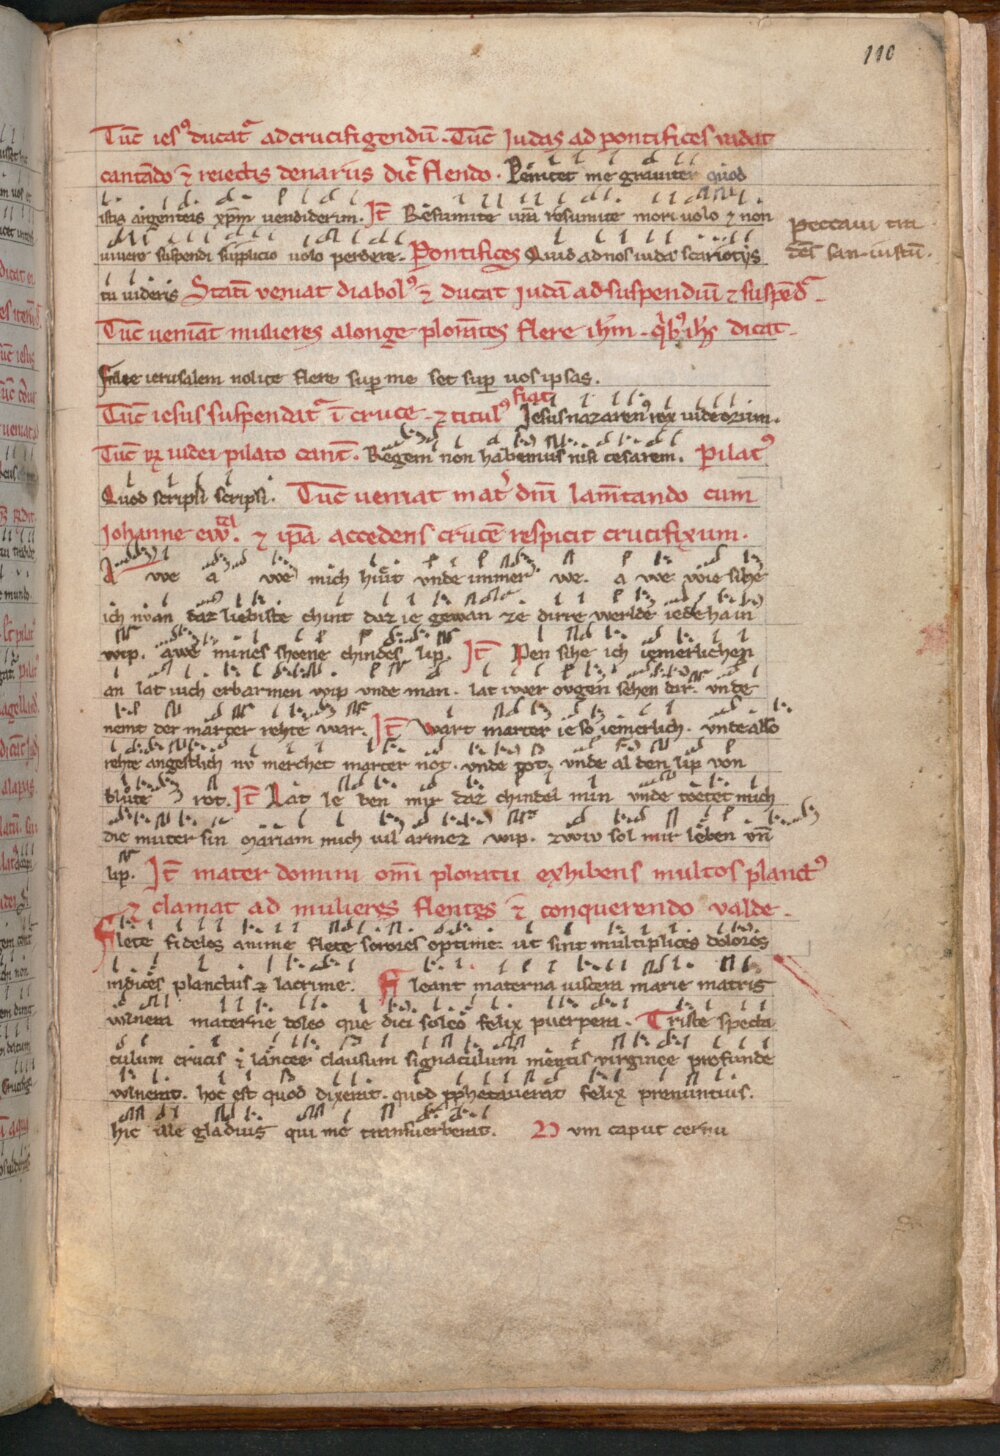 110
Tūc iesꝰ ducat᷑ ad crucifigendū. Tūc Judas ad pontifices vadat
cantādo ⁊ reiectis denariis dic̄t flendo. Penitet me graviter quod
istis argenteis xp̄m vendiderim. Jt̄ Resumite ur̄a resumite mori volo ⁊ non
vivere suspendi supplicio volo perdere. Pontifices Quid ad nos iuda scariotys
Peccavi tra
dēs san. iustū.
tu videris Statī veniat diabolꝰ ⁊ ducat Judā ad suspendiū ⁊ suspēd᷑.
Tūc veniāt mulieres a longe plorātes flere ih̄m. q̇bꝰ ih̄s dicat.
Filie ierusalem nolite flere sup me set sup vos ipsas.
fiat
Tūc iesus suspendat᷑ ī cruce. ⁊ titulꝰ Jesus nazarenꝰ rex iudeorum.
Tūc iudei pilato cant̄. Regem non habemus nisi cesarem. Pilatꝰ
Quod scripsi scripsi. Tūc veniat mat̓ dn̄i lam̄tando cum
Johanne ew̄. ⁊ ip̄a accedens crucē respicit crucifixum.
A we a we mich hiut vnde immer we. a we wie sihe
ich nv an daz liebiste chint daz ie gewan ze dirre werlde ie de hain
wip. awe mines shoene chindes lip. Jt̄ Den sihe ich iemerlichen
an lat iuch erbarmen wip vnde man. lat iwer ovgen sehen dar. vnde
nemt der marter rehte war. Jt̄ Wart marter ie so iemerlich. vnde also
rehte angestlich nv merchet marter not. vnde tot. vnde al den lip von
blute rot. Jt̄ Lat le ben mir daz chindel min vnde toetet mich
die muter sin mariam mich vil armez wip. zwiv sol mir leben vn̄
lip. Jt̄ mater domini om̄i ploratu exhibens multos planctꝰ
⁊ clamat ad mulieres flentes ⁊ conquerendo valde.
Flete fideles anime flete sorores optime. ut sint multiplices dolores
indices planctus ⁊ lacrime. Fleant materna viscera marie matris
vulnera materne doleo que dici soleo felix puerpera. Triste specta
culum crucis ⁊ lancee clausum signaculum mentis virginee profunde
vulnerat. hoc est quod dixerat. quod pphetaverat felix prenuntius.
hic ille gladius qui me transverberat. Dum caput cernu